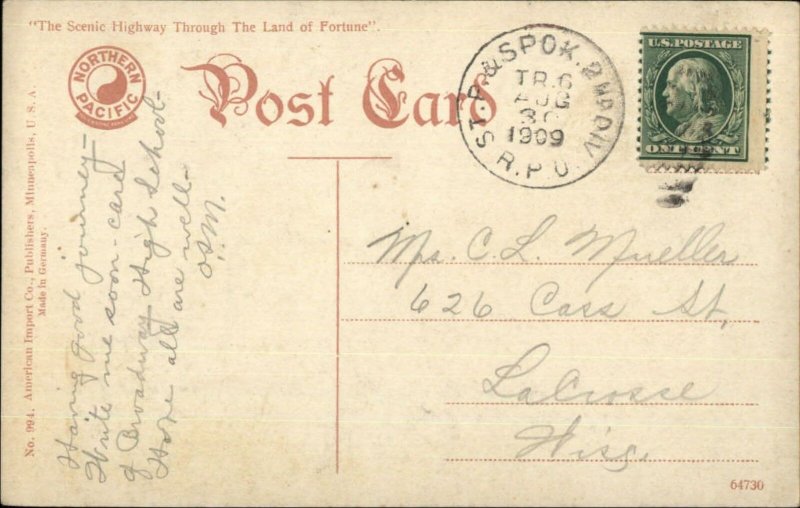 "The Scenic Highway Through The Land of Fortune".
NORTHERN
PACIFIC
Post Card
ST. P. & SPOK. 2ND DIV
TR. 6
AUG
30
1909
R.P.O.
U.S. POSTAGE
ONE CENT
No. 994. American Import Co., Publishers, Minneapolis, U. S. A.
Made in Germany.
Having good journey—
Write me soon - card
of Broadway High School—
Hope all are well—
Mrs. C. L. Mueller
626 Cass St,
LaCrosse
Wisc.
64730